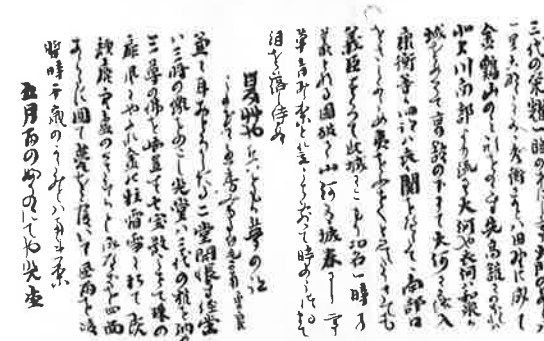 三代の栄耀一睡の中にして大門の
一里こなたに有秀衡か跡は田野に成て
金鶏山のみ形を残す先高館にのほれは
北上川南部より流るゝ大河也衣川は和泉か
城をめくりて高館の下にて大河に落入
康衡等か旧跡は衣関を隔て南部口
をさしかため夷をふせくと見えたり扨も
義臣すくつて此城にこもり功名一時の
叢となる国破れて山河あり城春にして
草青みたりと笠うち敷て時のうつるまて
泪を落し侍りぬ
夏艸や兵ともか夢の跡
卯の花に兼房みゆる白毛哉 曽良
兼て耳驚したる二堂開帳す経堂
は三将の像をのこし光堂は三代の棺を納め
三尊の仏を安置す七宝散うせて珠の
扉風にやふれ金の柱霜雪に朽て既
頽廃空虚の叢と成へきを四面
新に囲て甍を覆て風雨を凌
暫時千歳の記念とはなれり
五月雨の降のこしてや光堂